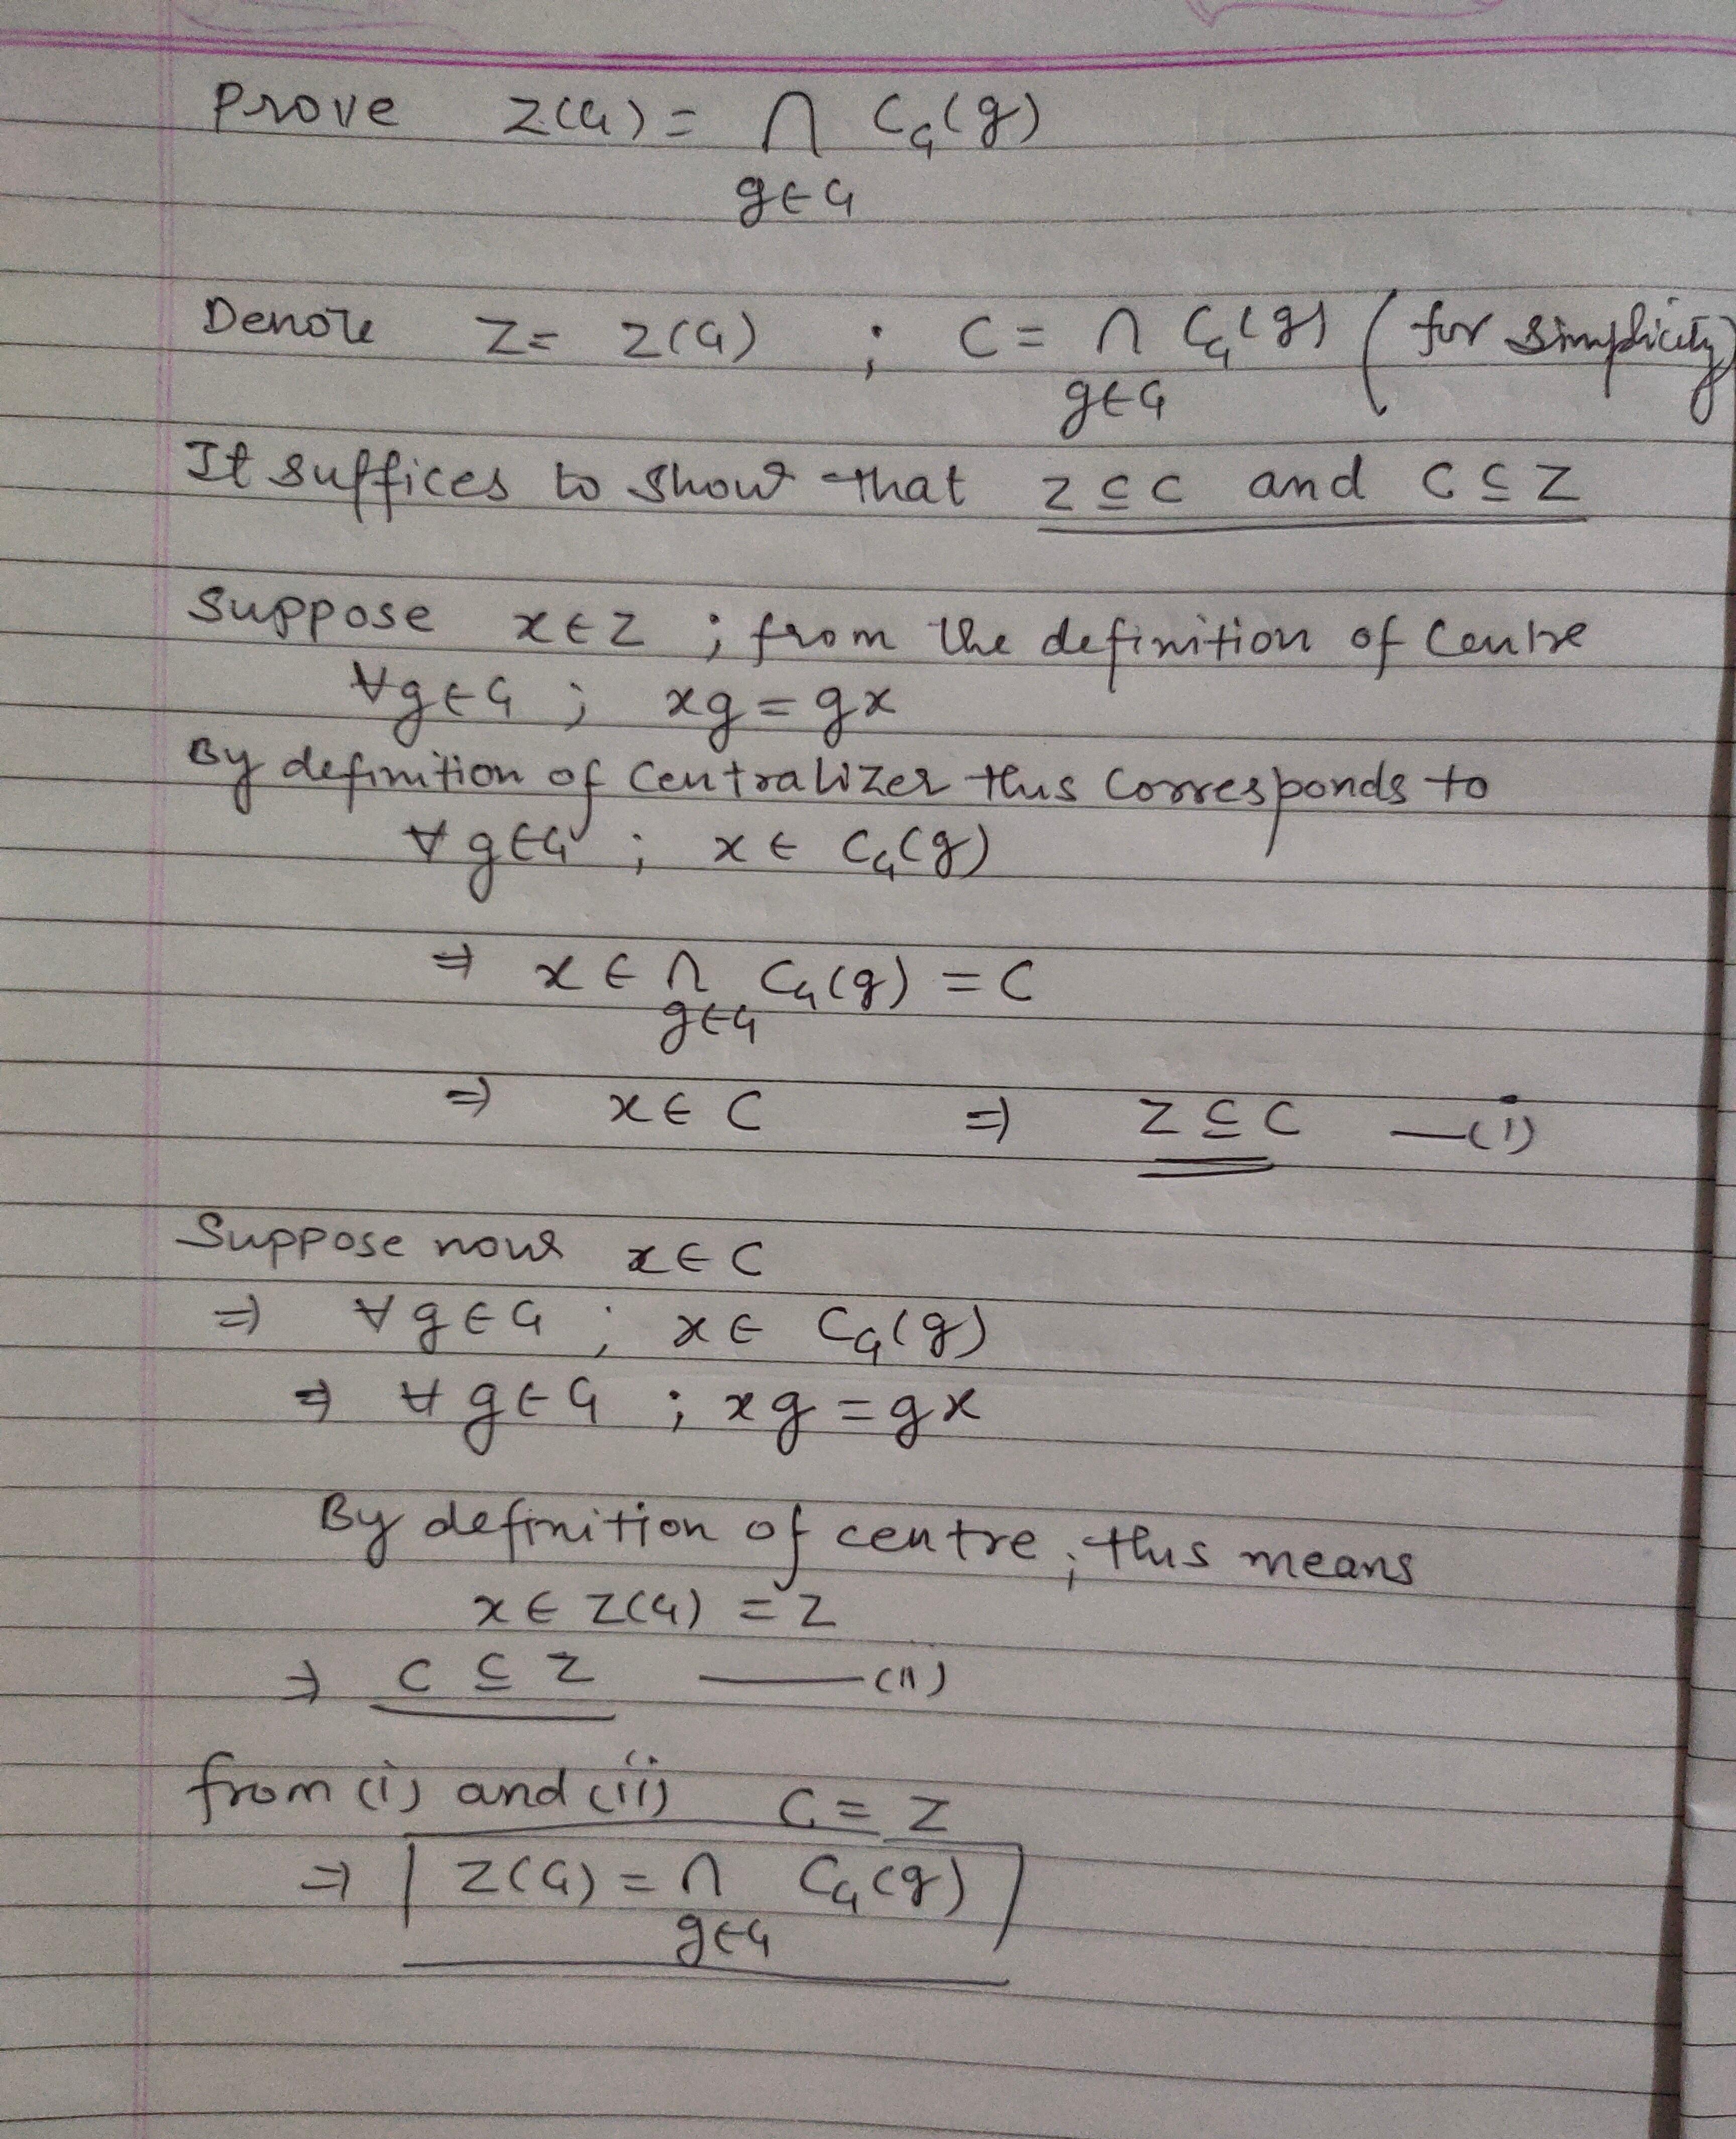 Prove Z(G) = ∩ C_G(g)
g∈G
Denote Z = Z(G) ; C = ∩ C_G(g) (for simplicity)
g∈G
It suffices to show that Z ⊆ C and C ⊆ Z
Suppose x∈Z ; from the definition of Centre
∀g∈G ; xg = gx
By definition of Centralizer this corresponds to
∀g∈G ; x ∈ C_G(g)
⇒ x ∈ ∩ C_G(g) = C
g∈G
⇒ x ∈ C ⇒ Z ⊆ C —(i)
Suppose now x ∈ C
⇒ ∀g∈G ; x ∈ C_G(g)
⇒ ∀g∈G ; xg = gx
By definition of centre, this means
x ∈ Z(G) = Z
⇒ C ⊆ Z —(ii)
from (i) and (ii) C = Z
⇒ Z(G) = ∩ C_G(g)
g∈G